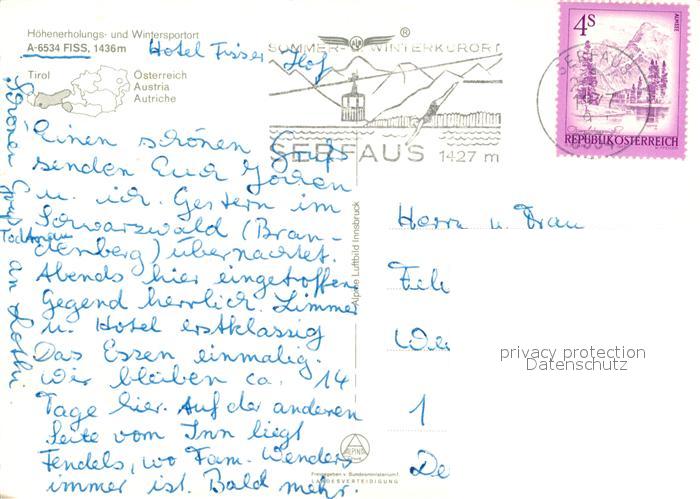 Höhenerholungs- und Wintersportort
A-6534 FISS, 1436 m
Hotel Fisser Hof
Tirol
Österreich
Austria
Autriche
SOMMER- U. WINTERKURORT
SERFAUS 1427 m
®
4S
ALMSEE
REPUBLIK ÖSTERREICH
SERFAUS
Einen schönen Gruß
senden Euch Jochen
u. ich. Gestern im
Schwarzwald (Bran-
denberg) übernachtet.
Todtnau
Abends hier eingetroffen
Gegend herrlich. Zimmer
u. Hotel erstklassig
Das Essen einmalig.
Wir bleiben ca. 14
Tage hier. Auf der anderen
Seite vom Inn liegt
Fendels, wo Fam. Wenders
immer ist. Bald mehr.
Schöner Gruß an
Alpine Luftbild Innsbruck
Herrn u. Frau
1
De
privacy protection
Datenschutz
ALPINE
Freigegeben v. Bundesministerium f.
LANDESVERTEIDIGUNG